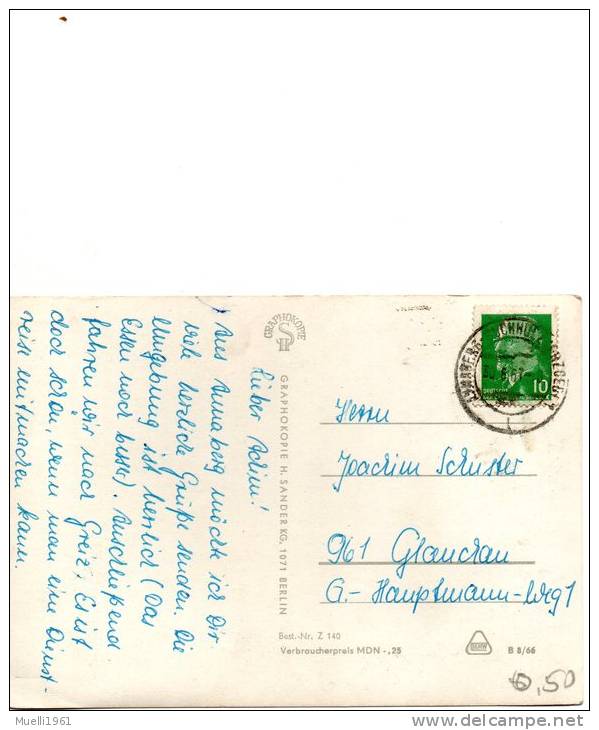 Lieber Achim!
Aus Annaberg möchte ich Dir
viele herzliche Grüße senden. Die
Umgebung ist herrlich (Das
Essen noch besser). Anschließend
fahren wir nach Greiz. Es ist
doch schön, wenn man eine Dienst-
reise mitmachen kann.
GRAPHOKOPIE
GRAPHOKOPIE H. SANDER KG, 1071 BERLIN
10
Herrn
Joachim Schuster
961 Glauchau
G.- Hauptmann-Weg 1
Best.-Nr. Z 140
Verbraucherpreis MDN -,25
B 8/66
0,50
Muelli1961
www.delcampe.net